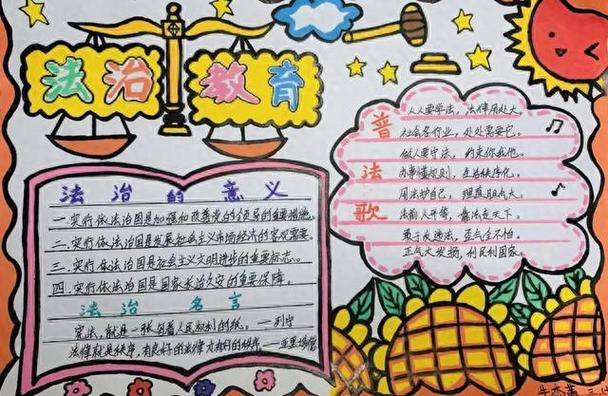 法治教育
法治的意义
一.实行依法治国是加强和改善党的领导的重要措施。
二.实行依法治国是发展社会主义市场经济的客观需要。
三.实行依法治国是社会主义文明进步的重要标志。
四.实行依法治国是国家长治久安的重要保障。
法治名言
宪法,就是一张写着人民权利的纸。—列宁
法律就是秩序,有良好的法律才有好的秩序—亚里埃德
普法歌
人人要学法,法律用处大。
社会各行业,处处需要它。
做人要守法,约束你我他。
办事懂规则,
用法护自己,理直胆气大。
法前人平等,靠法走天下。
敢于反违法,歪气全不怕。
正气大发扬,利民利国家。
三